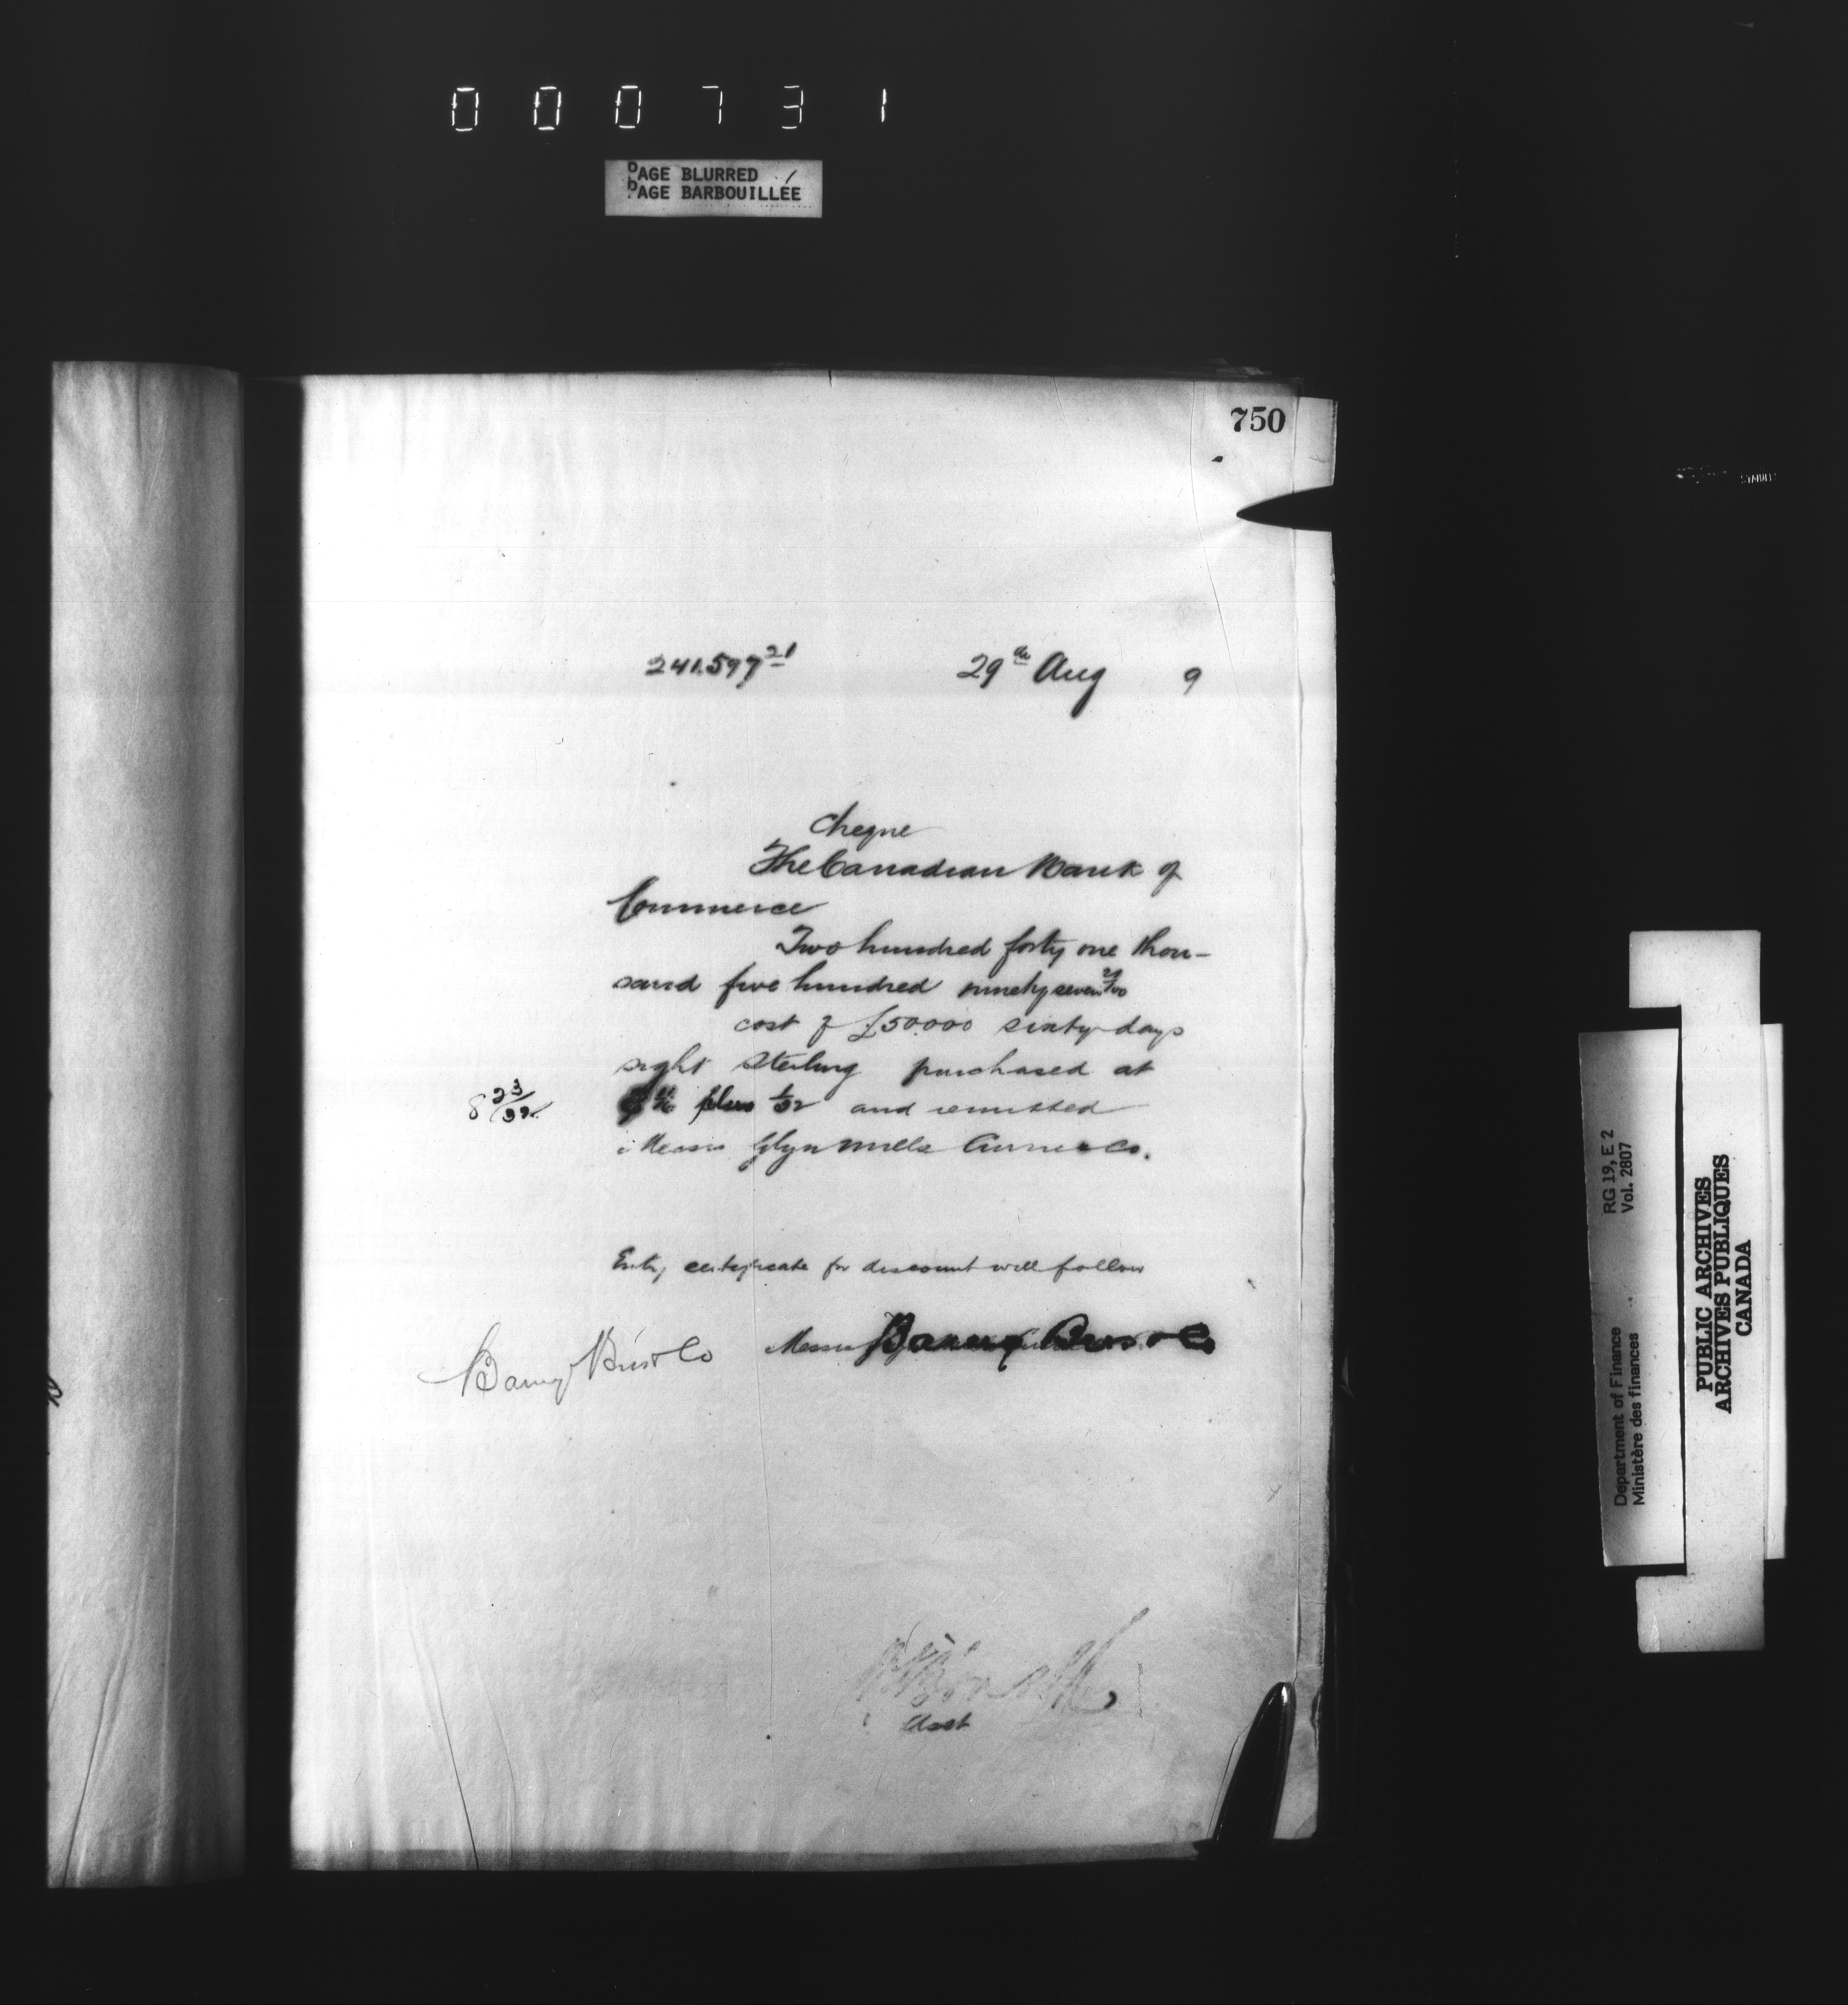 000731
PAGE BLURRED
PAGE BARBOUILLÉE
750
241.597 21
29th Aug 9
Cheque
The Canadian Bank of
Commerce
Two hundred forty one thou-
sand five hundred ninety seven 21/100
cost of £50.000 sixty days
sight sterling purchased at
8 23/32
8 11/16 plus 1/32 and remitted
Messrs Glyn Mills Currie & Co.
Entry certificate for discount will follow
Baring Bros & Co
Messrs Baring Bros & Co
Asst
RG 19, E 2
Vol. 2807
Department of Finance
Ministère des finances
PUBLIC ARCHIVES
ARCHIVES PUBLIQUES
CANADA